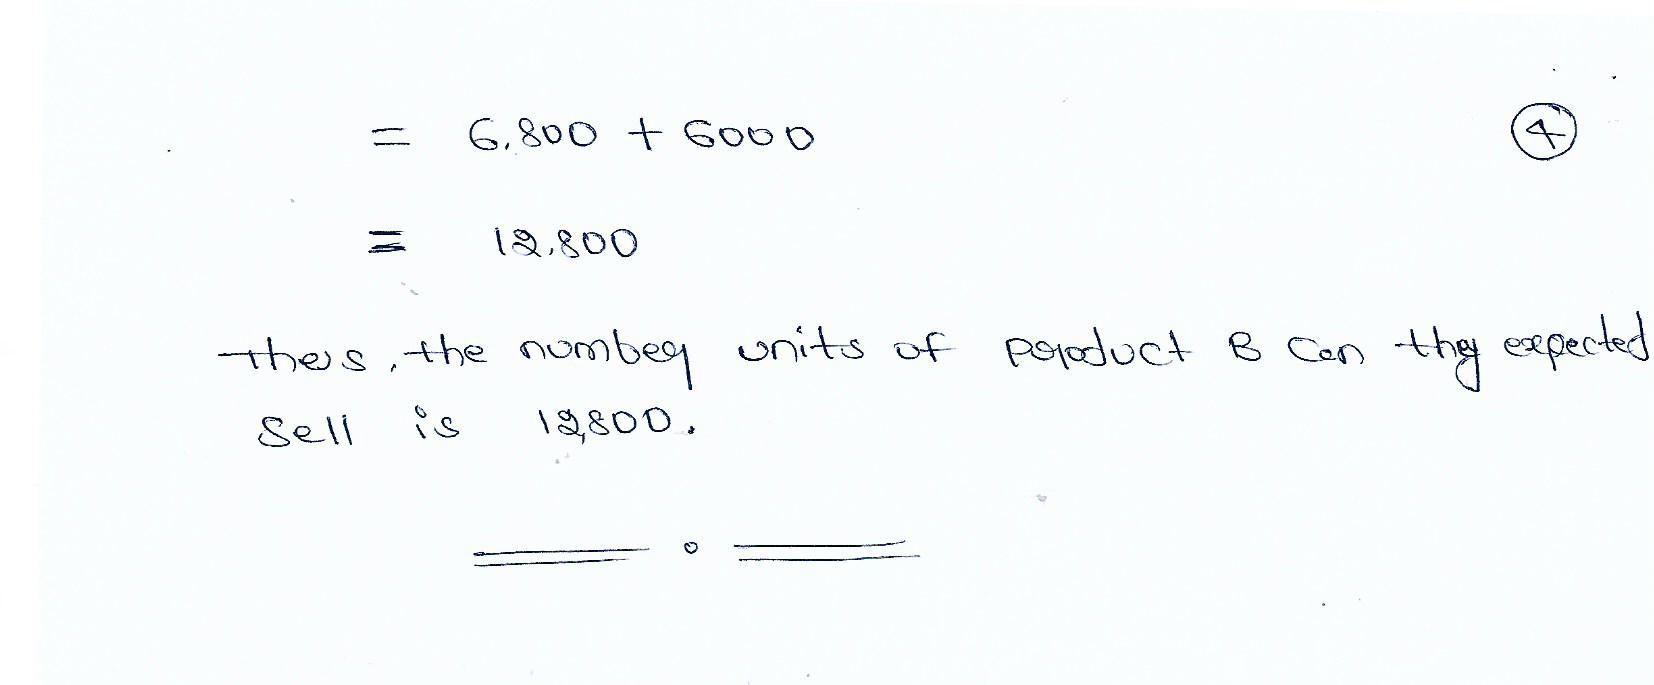 = 6,800 + 6000
4
= 12,800
thus, the number units of product B can they expected
sell is 12,800.